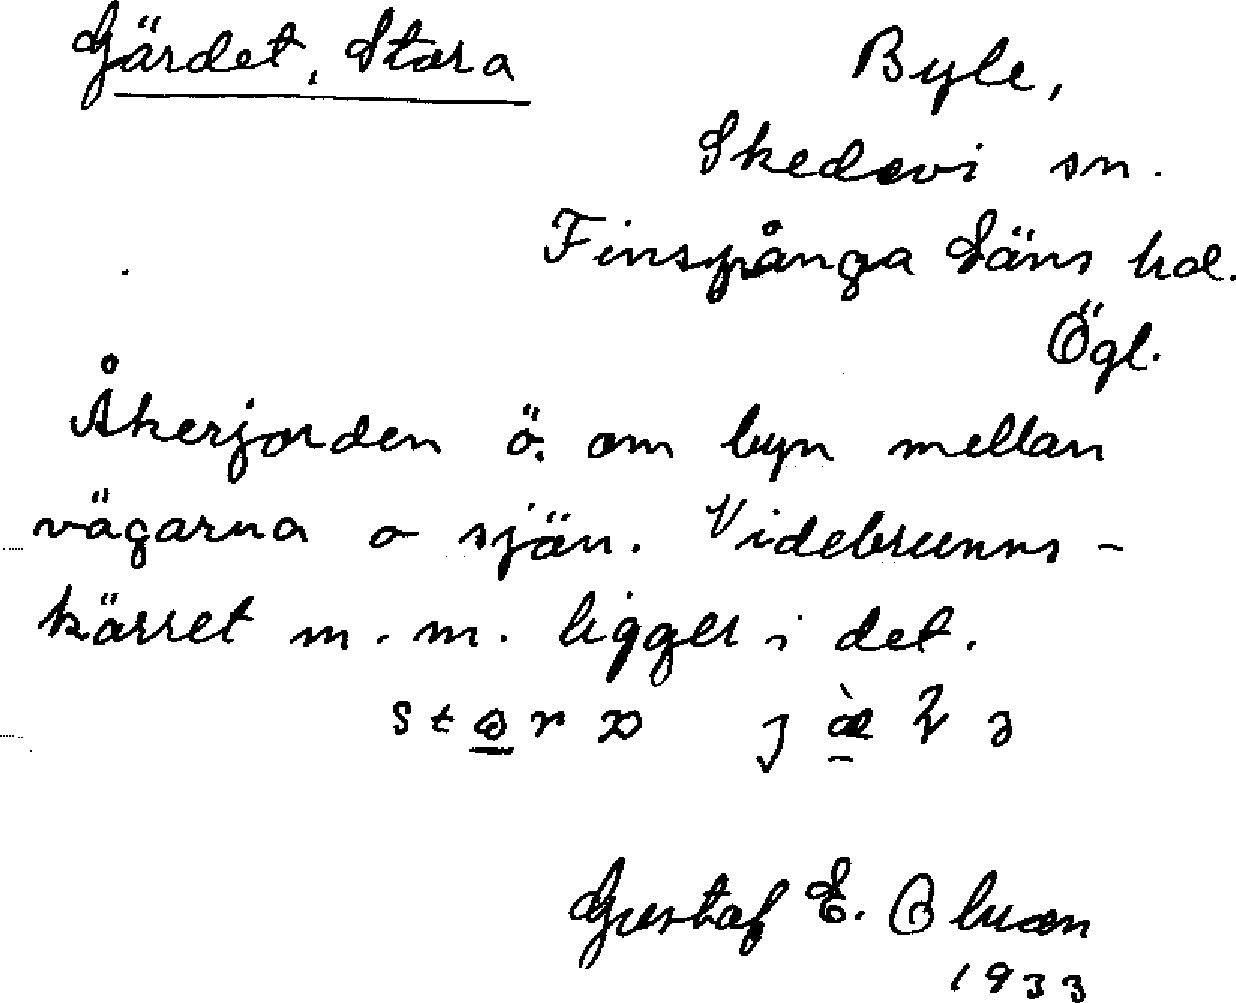 Gärdet, Stora
Byle,
Skedevi sn.
Finspånga Läns hd.
Ögl.
Åkerjorden ö. om byn mellan
vägarna o sjön. Videbrunns-
kärret m.m. ligger i det.
Gustaf E.
1933